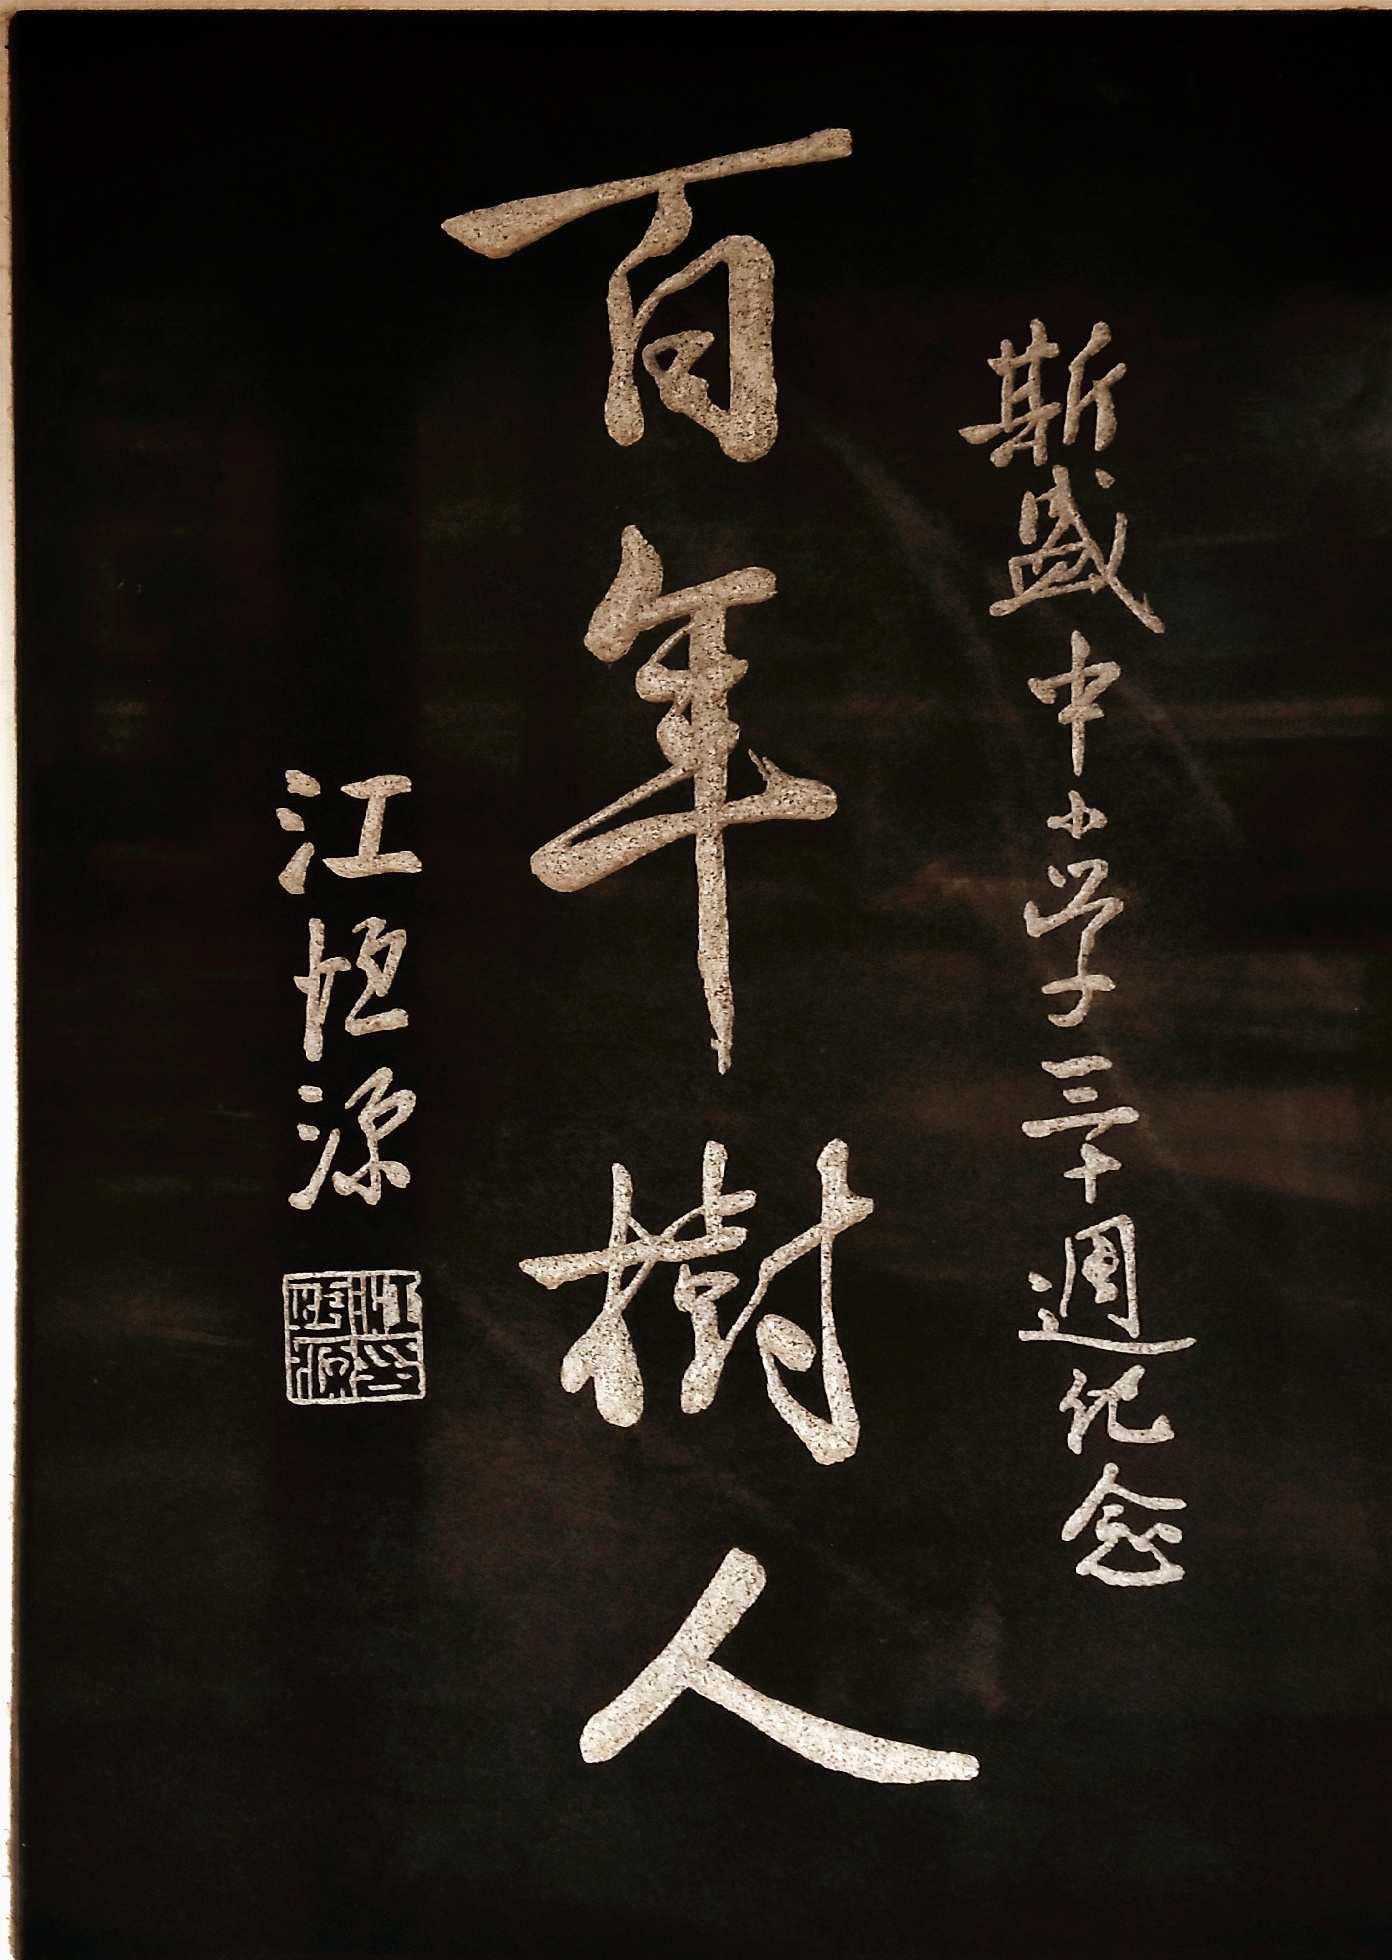 斯盛中小学三十週纪念
百年樹人
江恒源
江恒源印